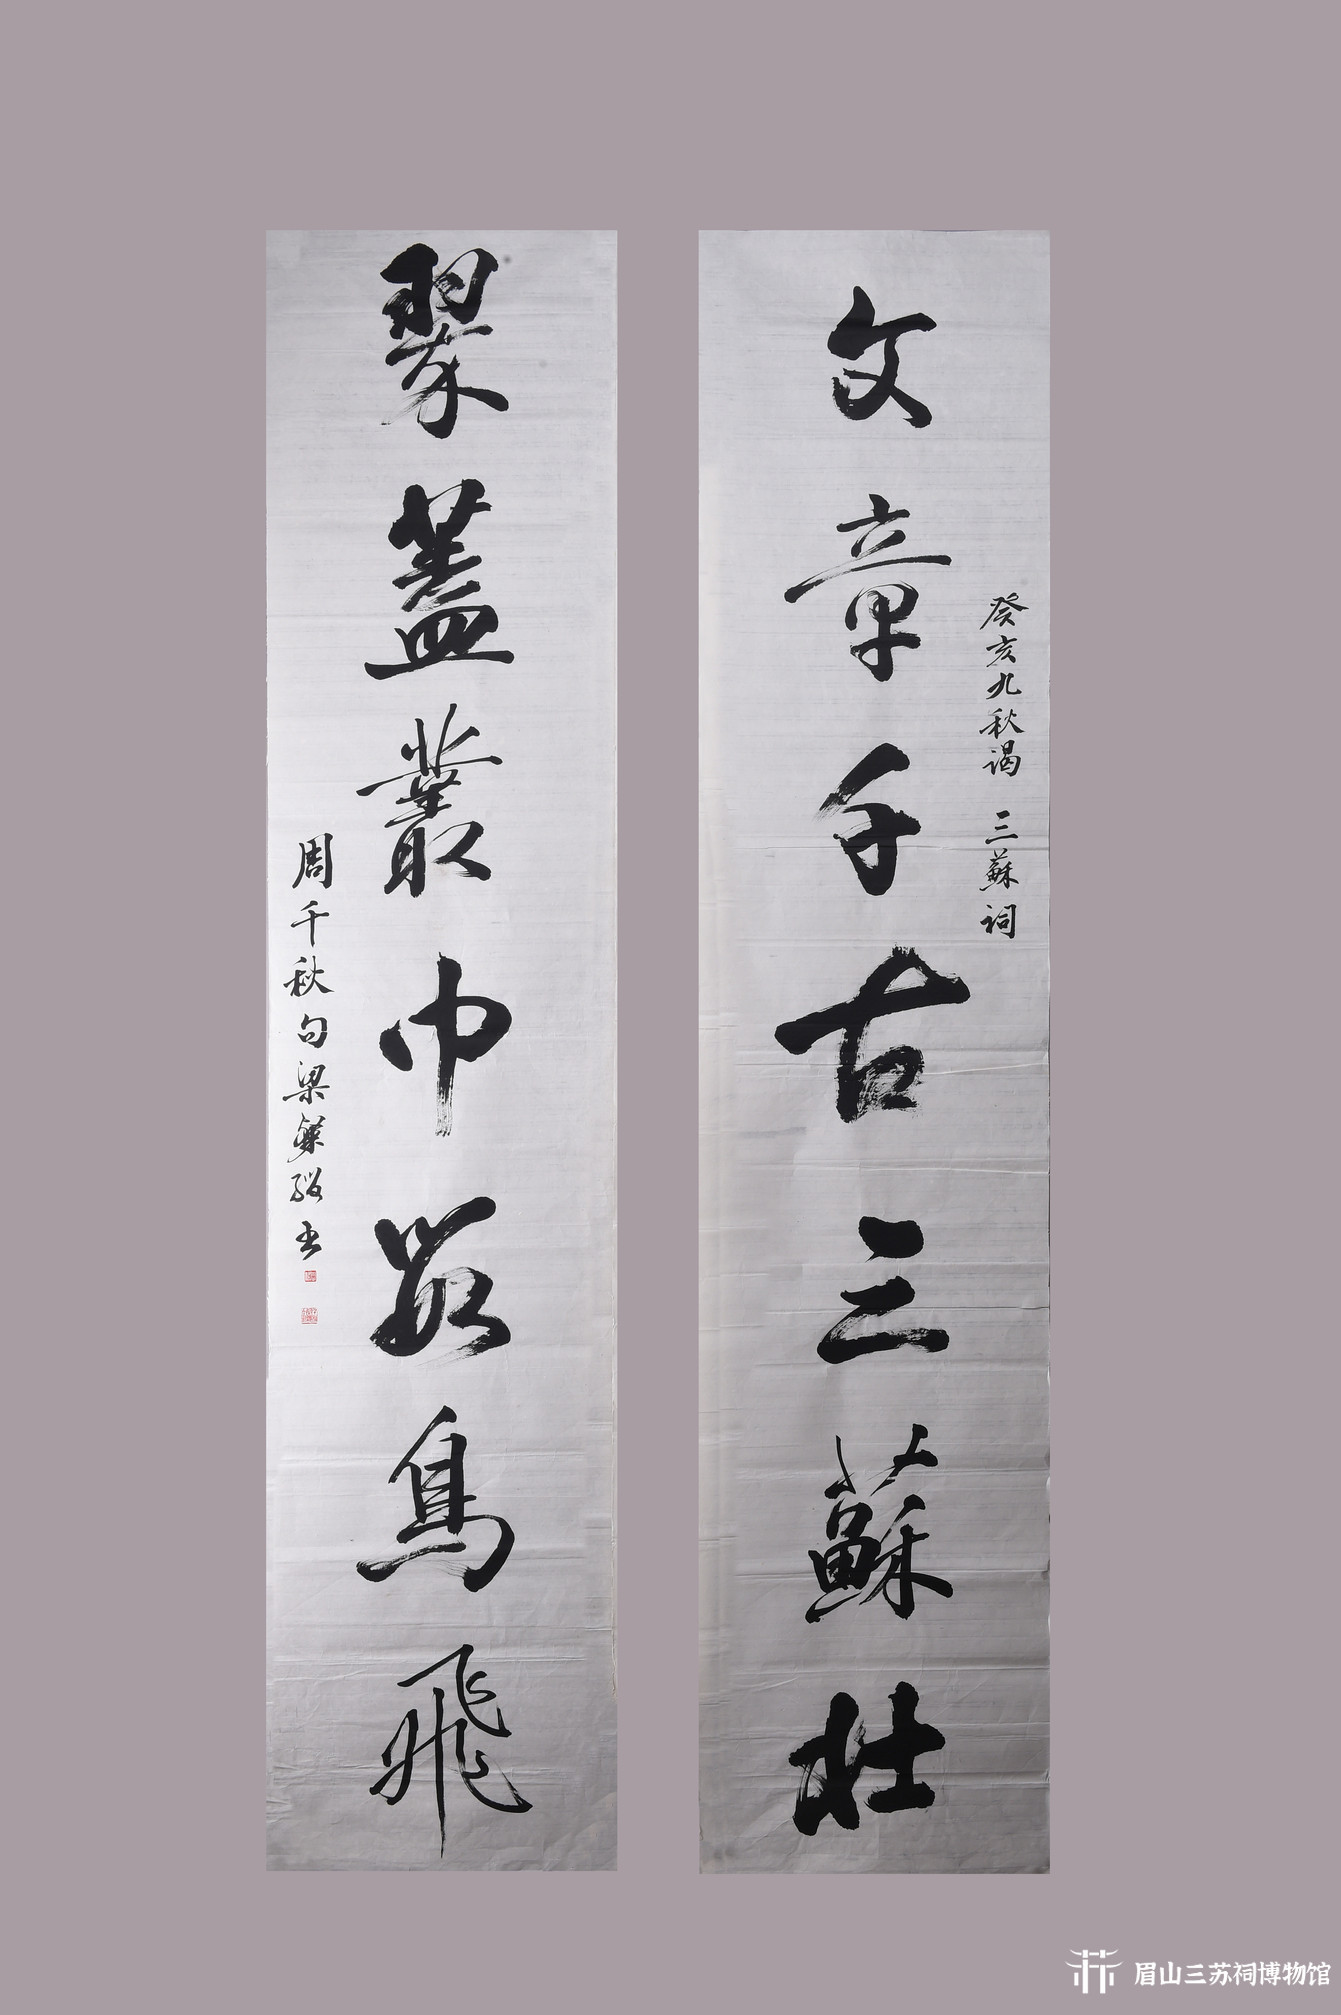 癸亥九秋谒 三蘇祠
文章千古三蘇壮
翠蓋叢中數鳥飛
周千秋句梁粲纓书
眉山三苏祠博物馆